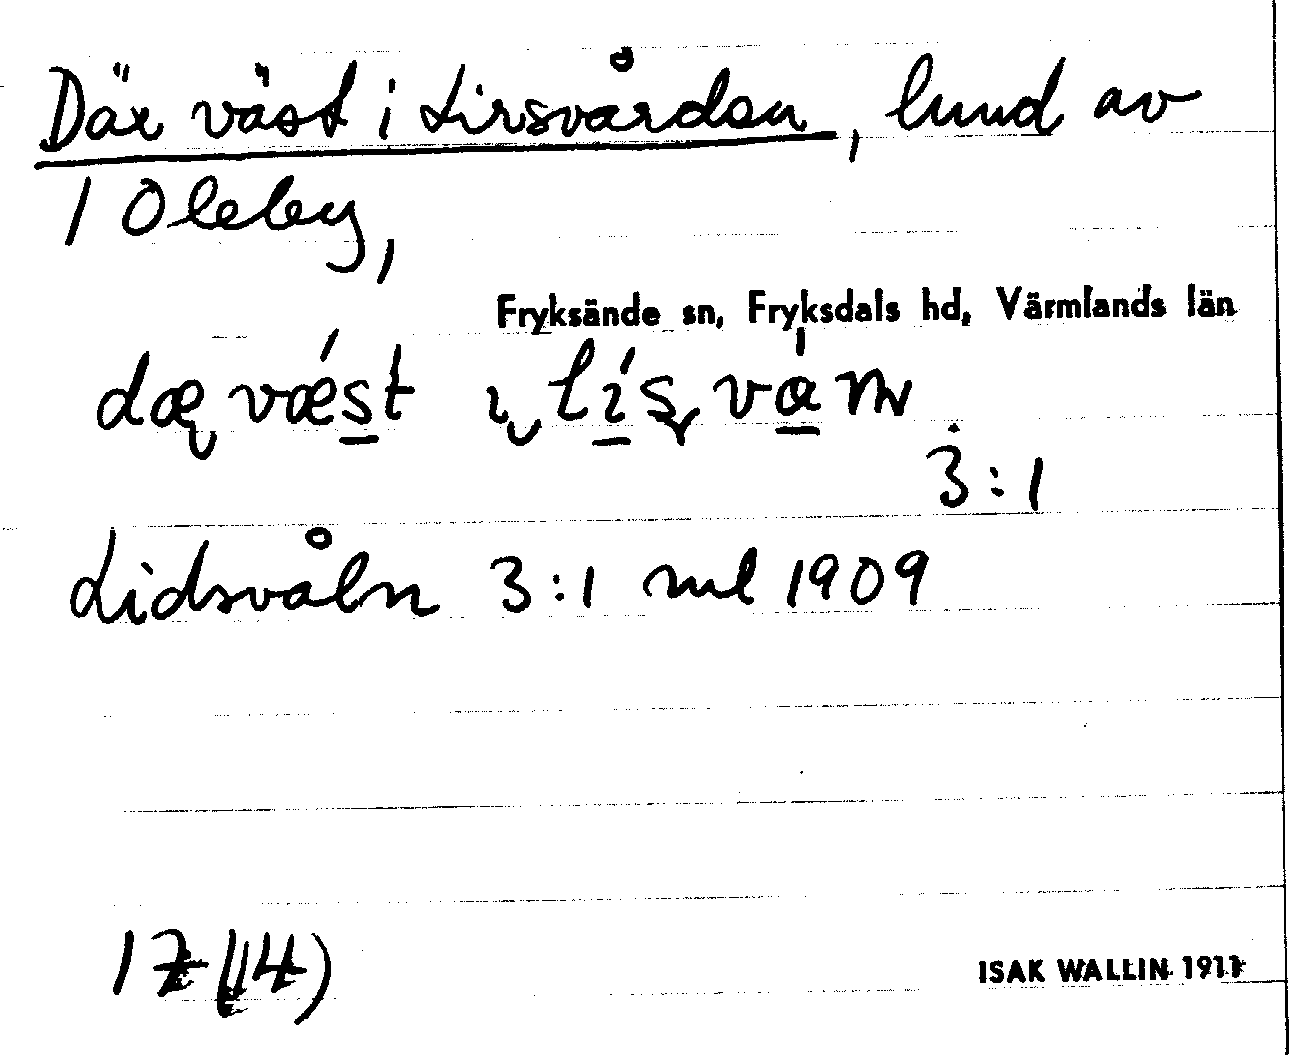 Där väst i Lirsvården, lund av
1 Oleby,
Fryksände sn, Fryksdals hd, Värmlands län
3:1
Lidsvåln 3:1 ml 1909
17 (14)
ISAK WALLIN 1911